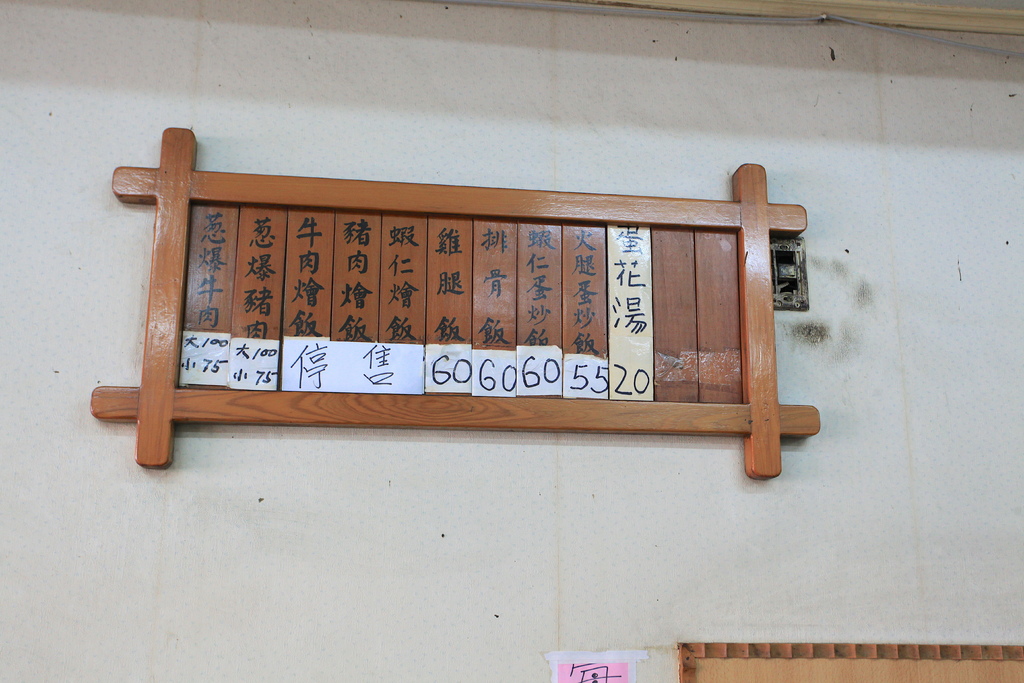 葱爆牛肉
大100
小75
葱爆豬肉
大100
小75
牛肉燴飯
豬肉燴飯
蝦仁燴飯
停售
雞腿飯
60
排骨飯
60
蝦仁蛋炒飯
60
火腿蛋炒飯
55
蛋花湯
20